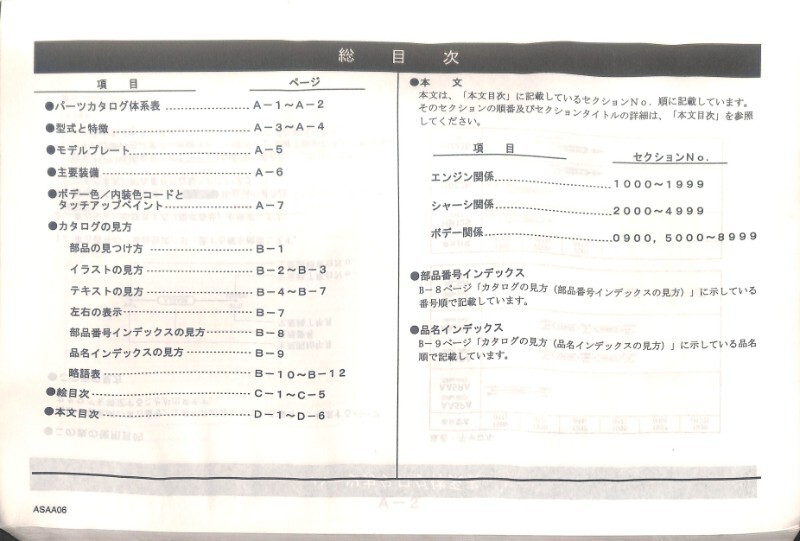 総　目　次
項　目　ページ
●パーツカタログ体系表 A－1～A－2
●型式と特徴 A－3～A－4
●モデルプレート A－5
●主要装備 A－6
●ボデー色／内装色コードと
タッチアップペイント A－7
●カタログの見方
部品の見つけ方 B－1
イラストの見方 B－2～B－3
テキストの見方 B－4～B－7
左右の表示 B－7
部品番号インデックスの見方 B－8
品名インデックスの見方 B－9
略語表 B－10～B－12
●絵目次 C－1～C－5
●本文目次 D－1～D－6
●本　文
本文は、「本文目次」に記載しているセクションNo．順に記載しています。
そのセクションの順番及びセクションタイトルの詳細は、「本文目次」を参照
してください。
項　目　セクションNo．
エンジン関係 1000～1999
シャーシ関係 2000～4999
ボデー関係 0900，5000～8999
●部品番号インデックス
B－8ページ「カタログの見方（部品番号インデックスの見方）」に示している
番号順で記載しています。
●品名インデックス
B－9ページ「カタログの見方（品名インデックスの見方）」に示している品名
順で記載しています。
ASAA06